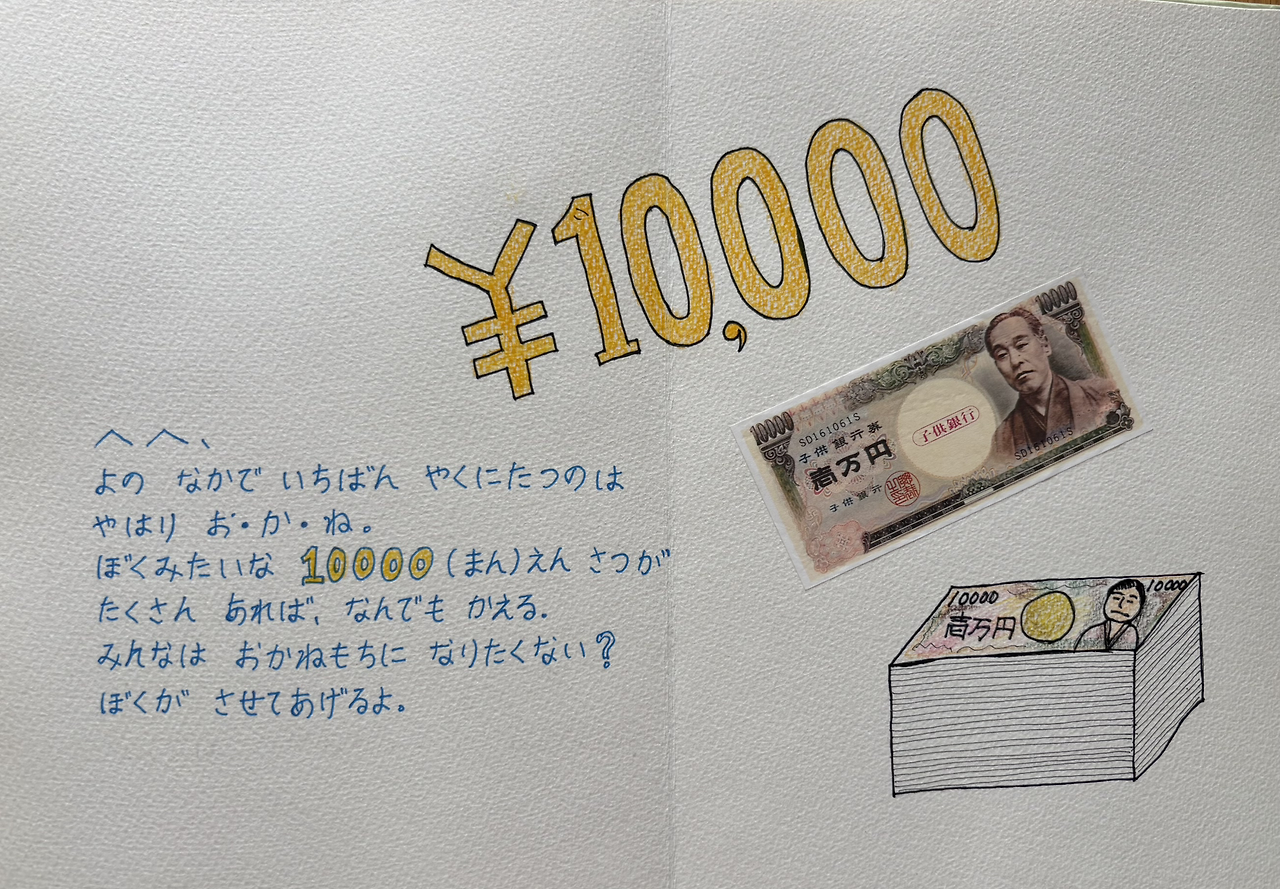 ¥10,000
へへ、
よの なかで いちばん やくにたつのは
やはり お・か・ね。
ぼくみたいな 10000(まん)えん さつが
たくさん あれば、なんでも かえる.
みんなは おかねもちに なりたくない?
ぼくが させてあげるよ。
10000
10000
SD161061S
子供銀行券
壱万円
子供銀行
子供銀行
SD161061S
10000
10000
壱万円